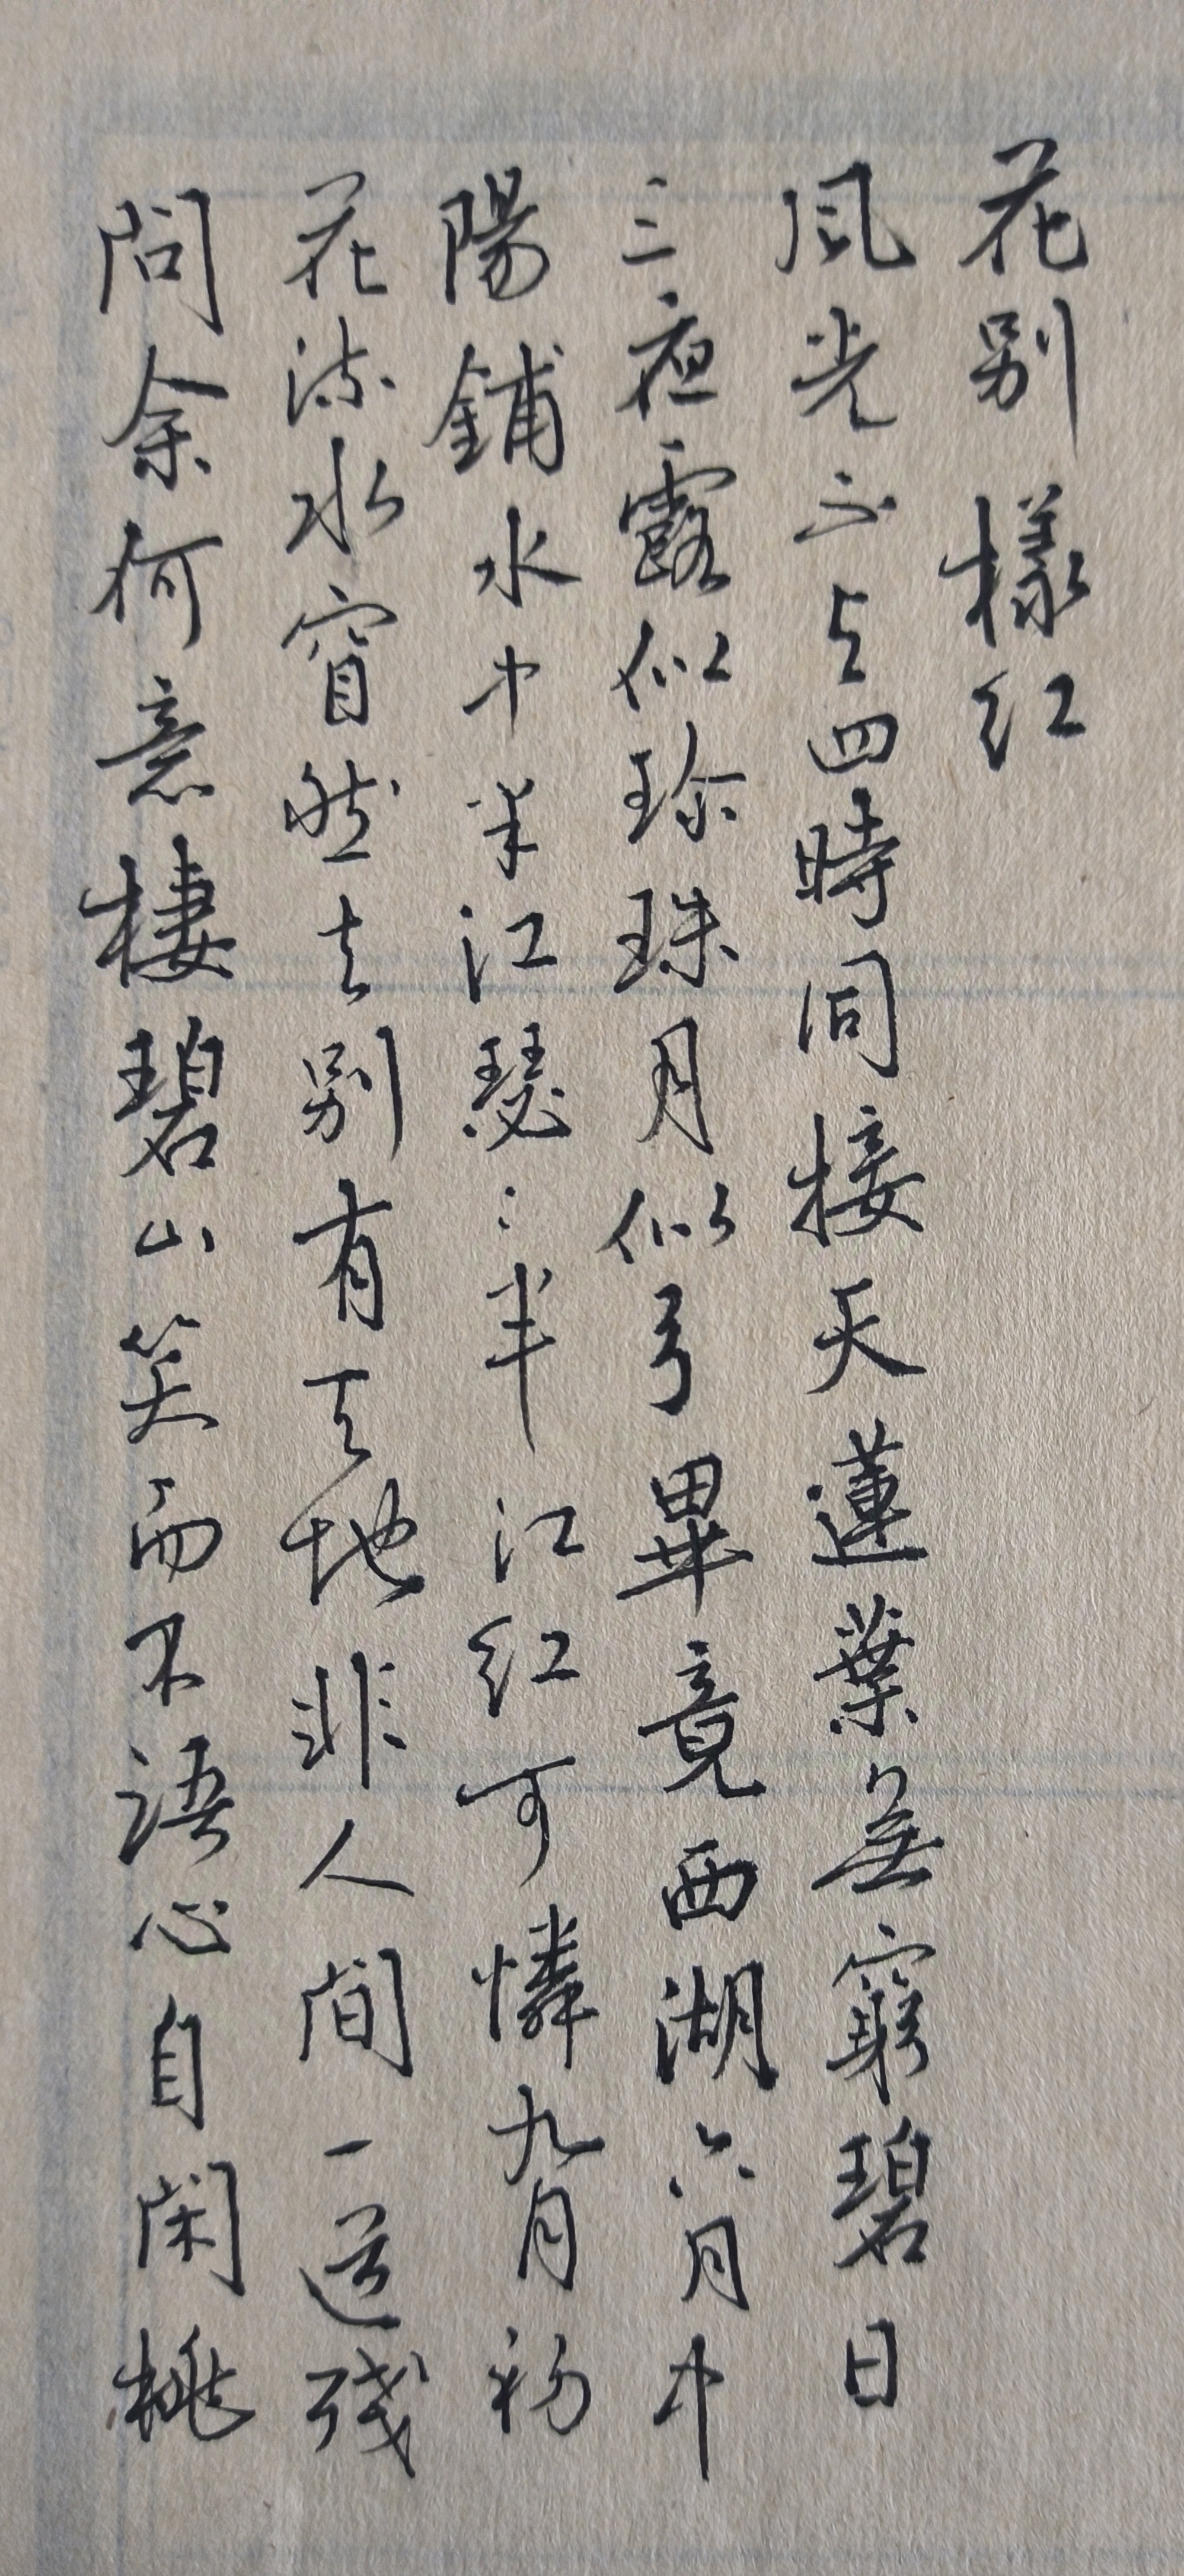 問余何意棲碧山笑而不語心自閑桃
花流水窅然去别有天地非人間一道殘
陽鋪水中半江瑟々半江紅可憐九月初
三夜露似珎珠月似弓畢竟西湖六月中
風光不与四時同接天蓮葉無窮碧日
花别樣紅